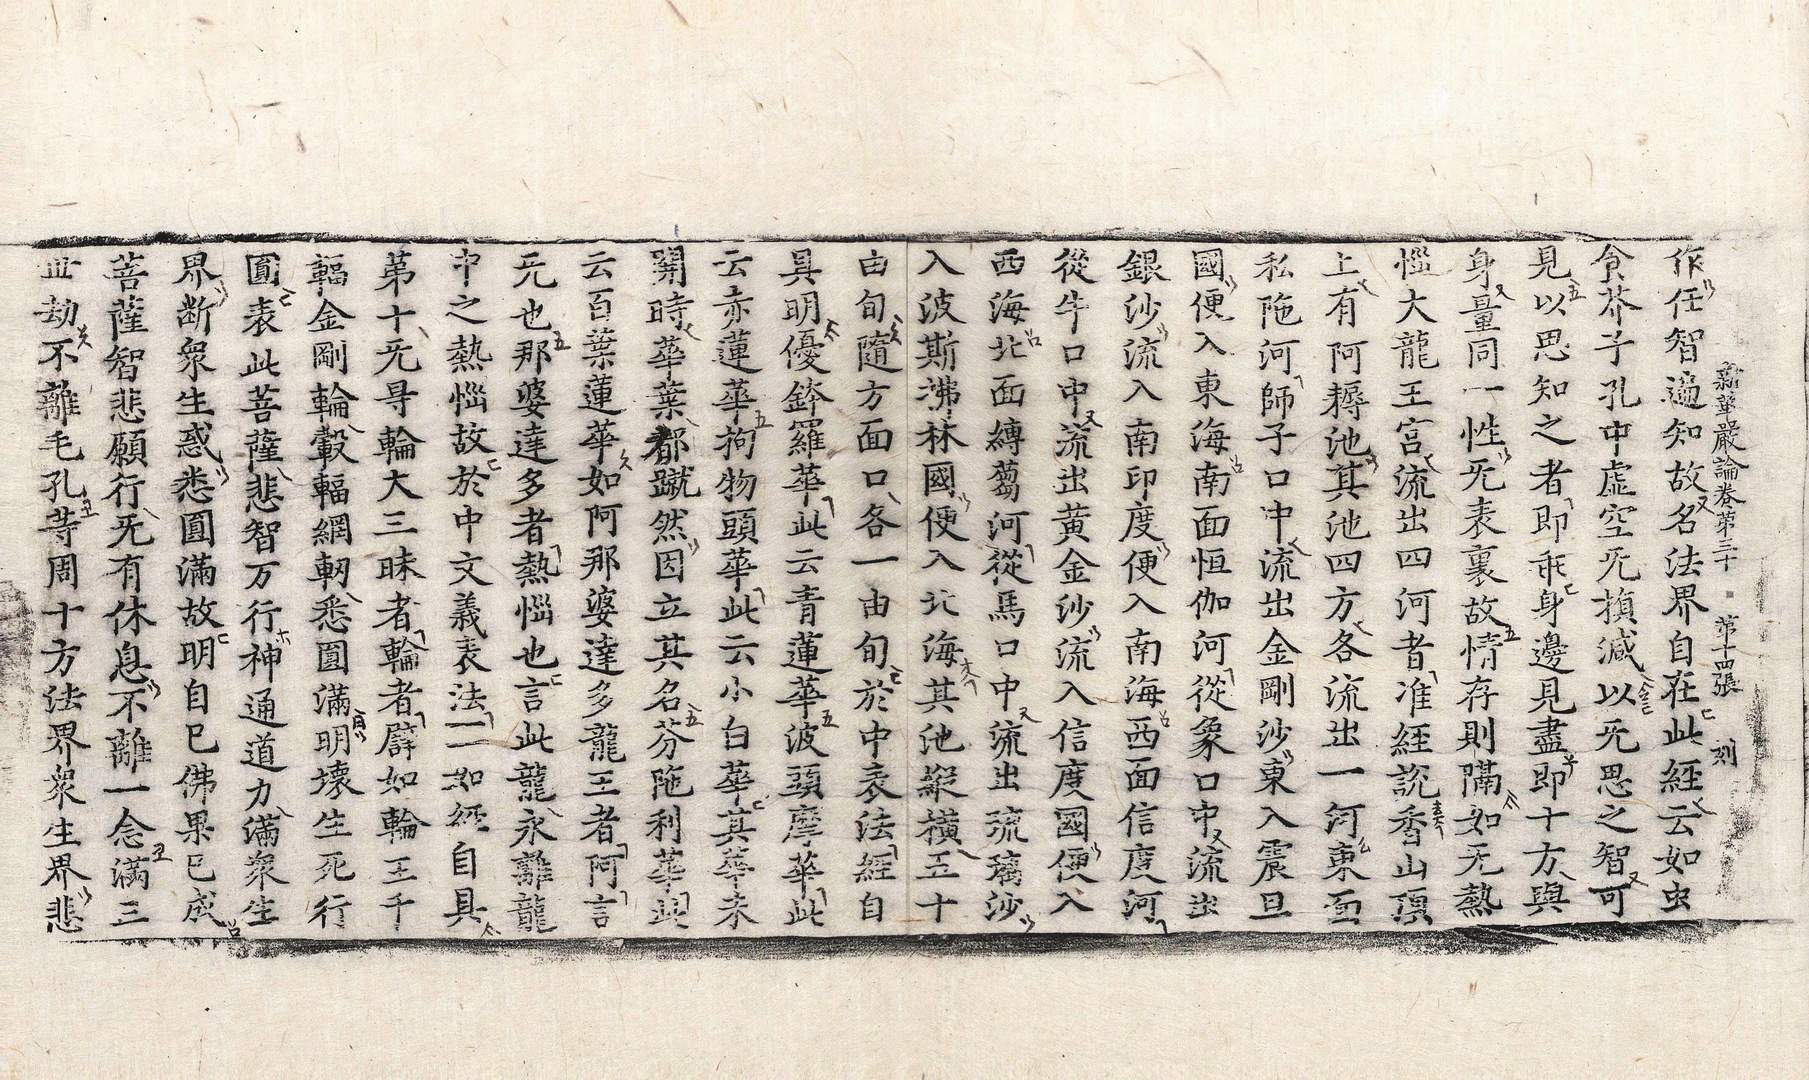 新華嚴論卷第三十 第十四張 刻
作任智遍知故名法界自在此經云如虫
食芥子孔中虛空旡損減以旡思之智可
見以思知之者即乖身邊見盡即十方與
身量同一性旡表裏故情存則隔如旡熱
惱大龍王宮流出四河者准經說香山頂
上有阿耨池其池四方各流出一河東面
私陁河師子口中流出金剛沙東入震旦
國便入東海南面恒伽河從象口中流出
銀沙流入南印度便入南海西面信度河
從牛口中流出黃金沙流入信度國便入
西海北面縛蒭河從馬口中流出琉璃沙
入波斯拂林國便入北海其池縱橫五十
由旬隨方面口各一由旬於中表法經自
具明優鉢羅華此云青蓮華波頭摩華此
云赤蓮華拘物頭華此云小白華其華未
開時華葉都蹴然因立其名芬陁利華此
云百葉蓮華如阿那婆達多龍王者阿言
旡也那婆達多者熱惱也言此龍永離龍
中之熱惱故於中文義表法一一如經自具
第十旡㝵輪大三昧者輪者廦如輪王千
輻金剛輪轂輻網軔悉圓滿明壞生死行
圓表此菩薩悲智万行神通道力滿衆生
界断衆生惑悉圓滿故明自已佛果已成
菩薩智悲願行旡有休息不離一念滿三
世劫不離毛孔䒭周十方法界衆生界悲